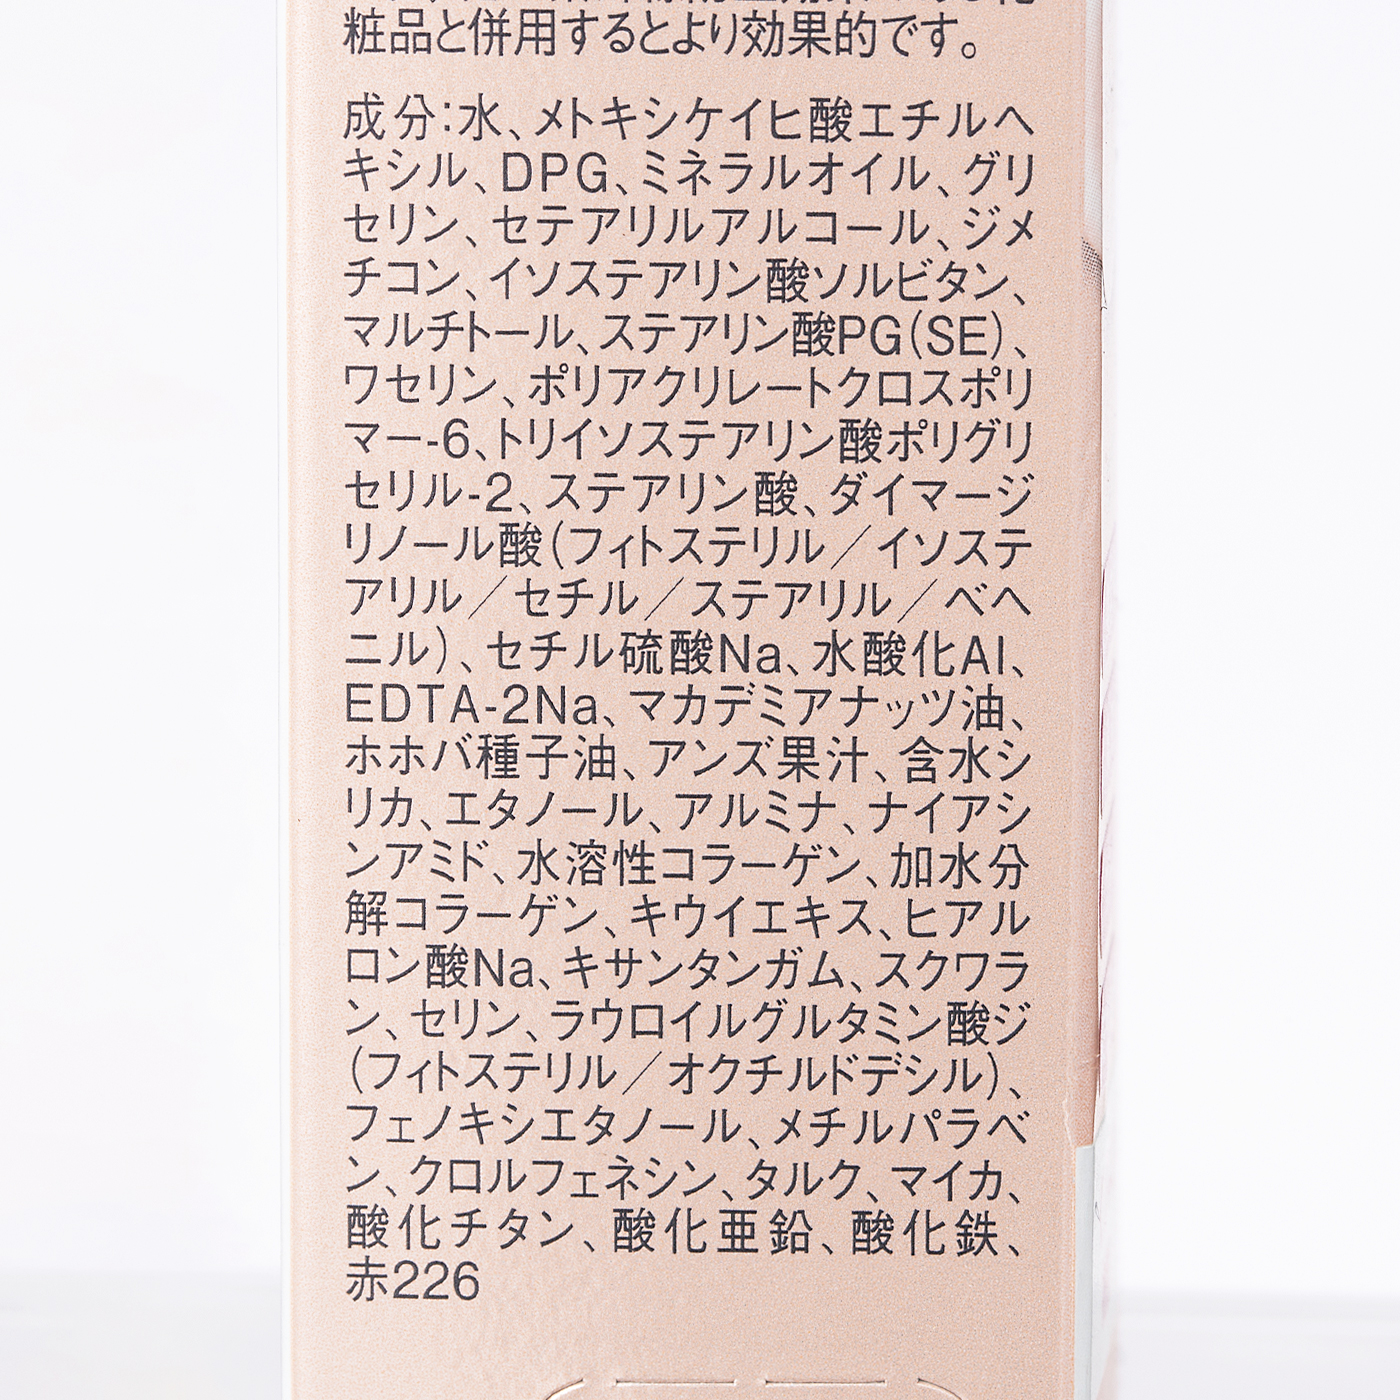 粧品と併用するとより効果的です。
成分：水、メトキシケイヒ酸エチルヘ
キシル、DPG、ミネラルオイル、グリ
セリン、セテアリルアルコール、ジメ
チコン、イソステアリン酸ソルビタン、
マルチトール、ステアリン酸PG（SE）、
ワセリン、ポリアクリレートクロスポリ
マー-6、トリイソステアリン酸ポリグリ
セリル-2、ステアリン酸、ダイマージ
リノール酸（フィトステリル／イソステ
アリル／セチル／ステアリル／ベヘ
ニル）、セチル硫酸Na、水酸化Al、
EDTA-2Na、マカデミアナッツ油、
ホホバ種子油、アンズ果汁、含水シ
リカ、エタノール、アルミナ、ナイアシ
ンアミド、水溶性コラーゲン、加水分
解コラーゲン、キウイエキス、ヒアル
ロン酸Na、キサンタンガム、スクワラ
ン、セリン、ラウロイルグルタミン酸ジ
（フィトステリル／オクチルドデシル）、
フェノキシエタノール、メチルパラベ
ン、クロルフェネシン、タルク、マイカ、
酸化チタン、酸化亜鉛、酸化鉄、
赤226